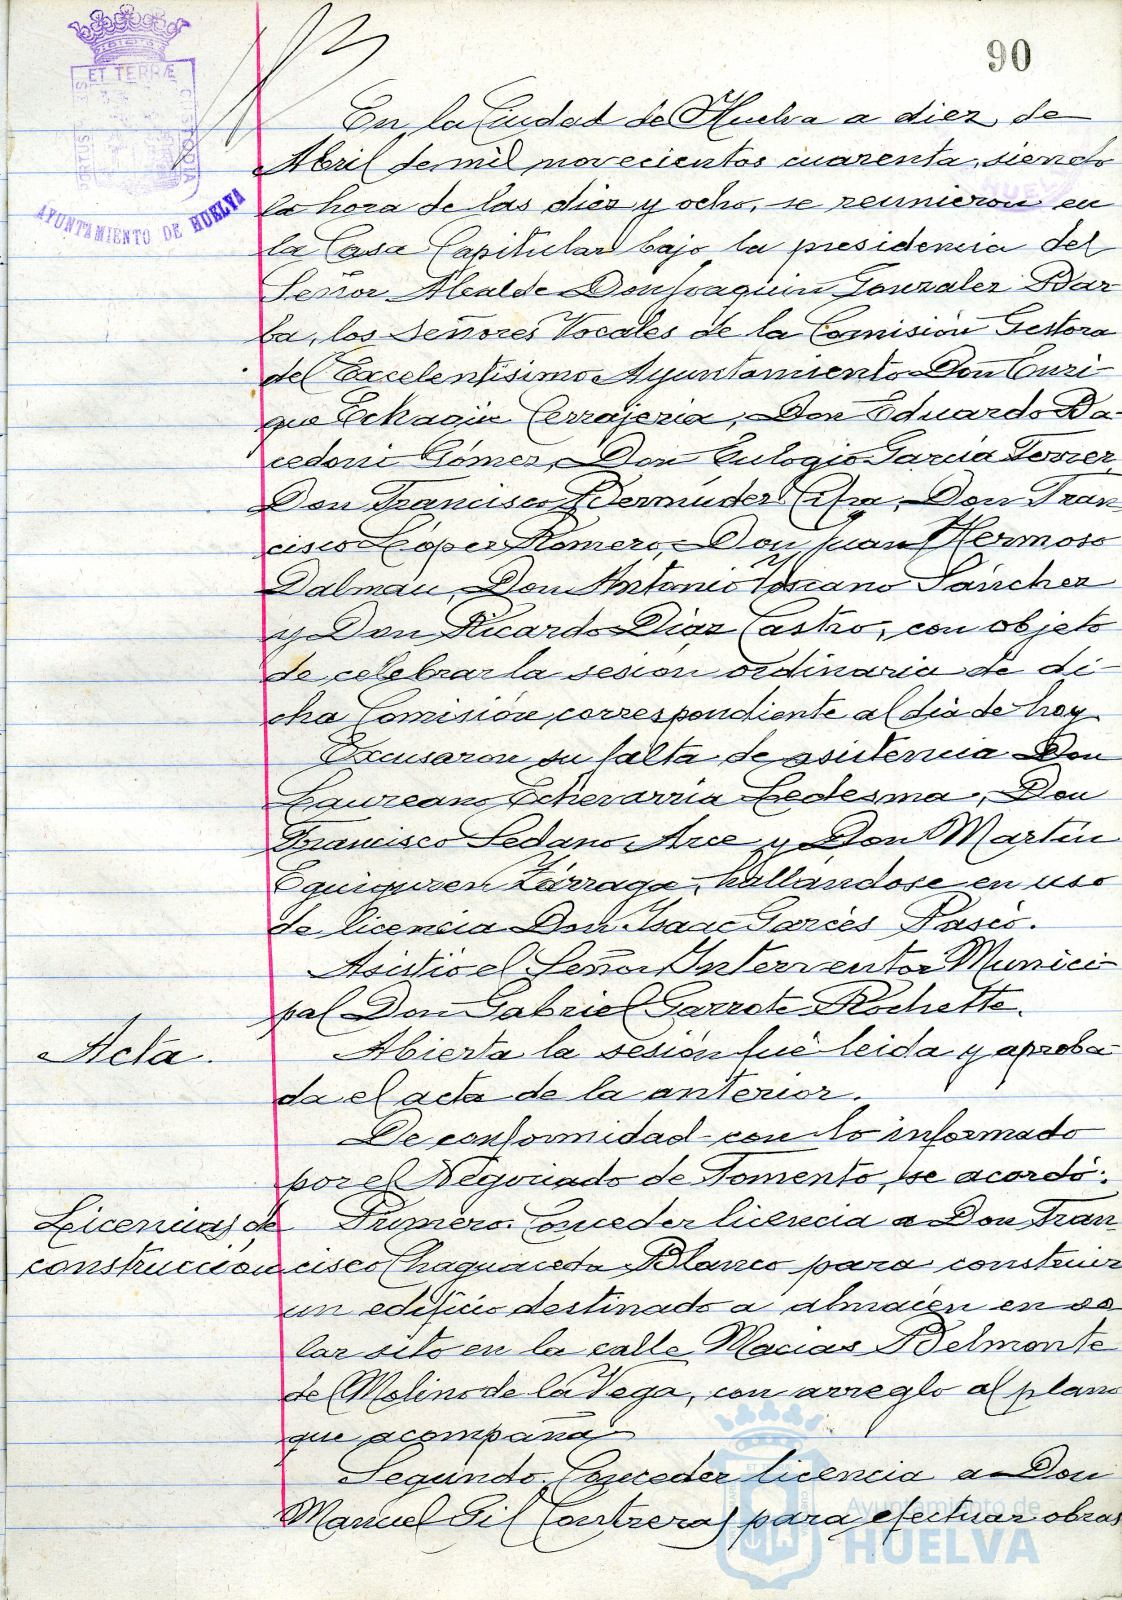 90
ET TERRÆ
PORTUS
CUSTODIA
AYUNTAMIENTO DE HUELVA
En la Ciudad de Huelva a diez de
Abril de mil novecientos cuarenta, siendo
la hora de las diez y ocho, se reunieron en
la Casa Capitular bajo la presidencia del
Señor Alcalde Don Joaquin Gonzalez Bar-
ba, los Señores Vocales de la Comisión Gestora
del Excelentisimo Ayuntamiento Don Enri-
que Echagüe Cerrajeria, Don Eduardo Ba-
cedoni Gómez, Don Eulogio Garcia Ferrer,
Don Francisco Bermúdez Cifra, Don Fran-
cisco López Romero, Don Juan Hermoso
Dalmau, Don Antonio Toscano Sánchez
y Don Ricardo Diaz Castro, con objeto
de celebrar la sesión ordinaria de di-
cha Comisión, correspondiente al dia de hoy.
Excusaron su falta de asistencia Don
Laureano Echevarria Ledesma, Don
Francisco Sedano Arce y Don Martin
Eguiguren Zárraga, hallándose en uso
de licencia Don Isaac Garcés Pasció.
Asistió el Señor Interventor Munici-
pal Don Gabriel Garrote Rochette.
Acta. Abierta la sesión fué leida y aproba-
da el acta de la anterior.
De conformidad con lo informado
por el Negociado de Fomento, se acordó:
Licencias de Primero. Conceder licencia a Don Fran-
construcción cisco Chaguaceda Blanco para construir
un edificio destinado a almacén en so
lar sito en la calle Macias Belmonte
de Molino de la Vega, con arreglo al plano
que acompaña
Segundo. Conceder licencia a Don
Manuel Gil Contreras para efectuar obras
Ayuntamiento de
HUELVA